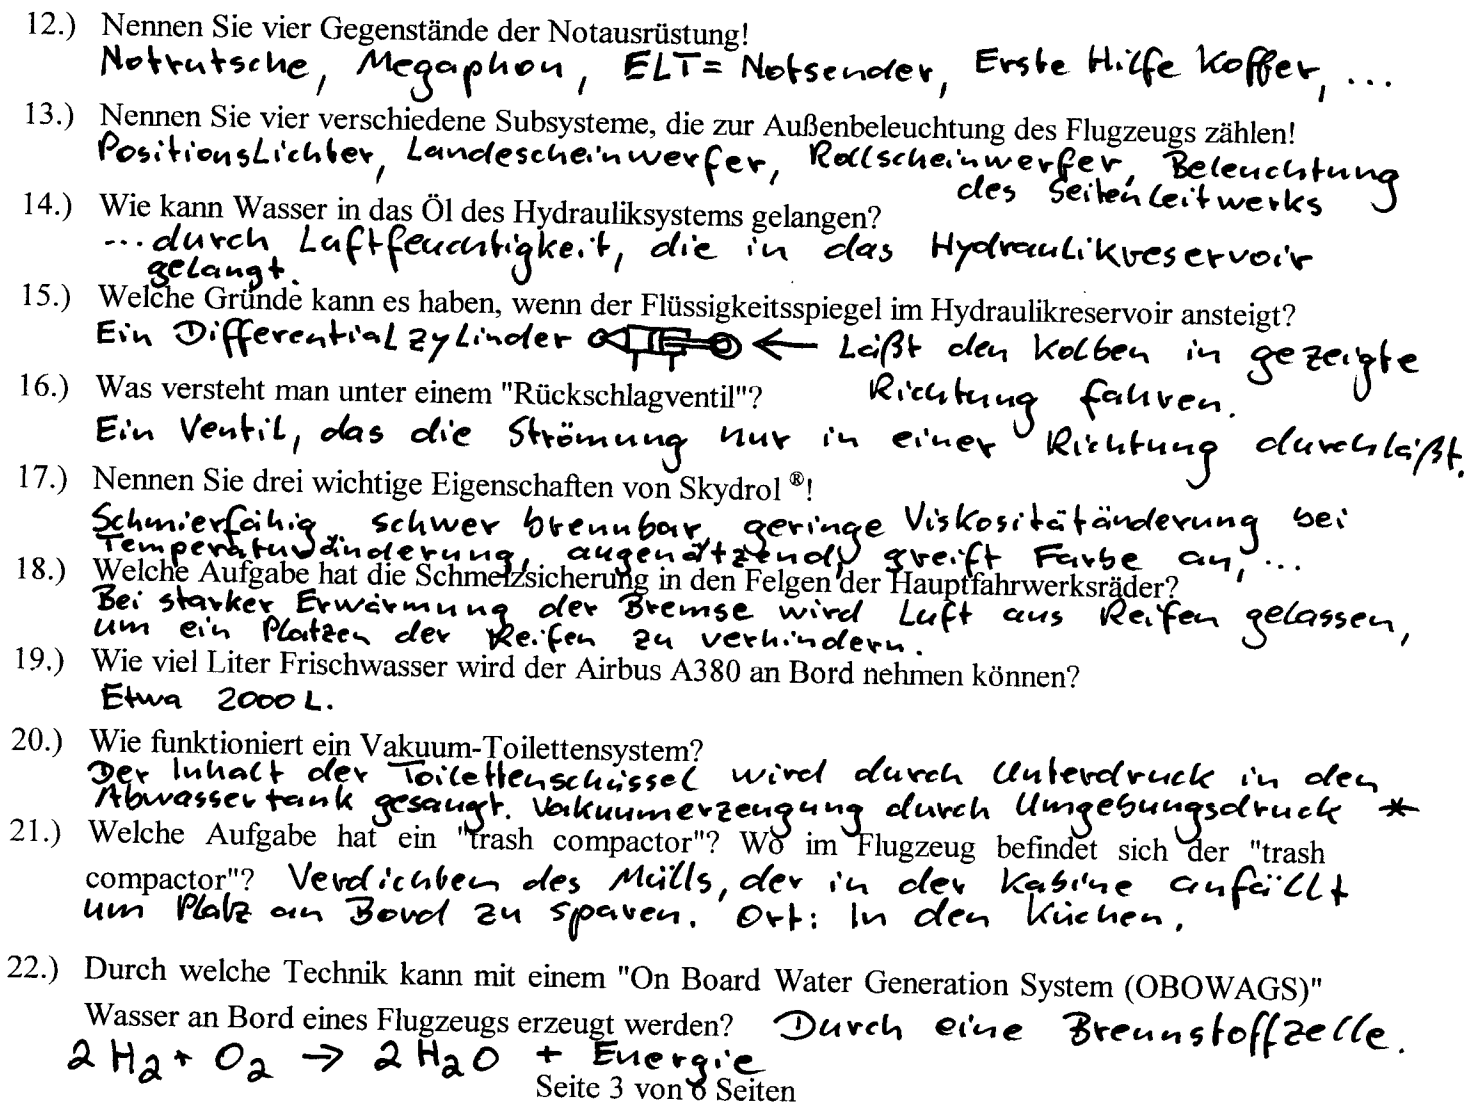 12.) Nennen Sie vier Gegenstände der Notausrüstung!
Notrutsche, Megaphon, ELT = Notsender, Erste Hilfe Koffer, ...
13.) Nennen Sie vier verschiedene Subsysteme, die zur Außenbeleuchtung des Flugzeugs zählen!
Positionslichter, Landescheinwerfer, Rollscheinwerfer, Beleuchtung
des Seitenleitwerks
14.) Wie kann Wasser in das Öl des Hydrauliksystems gelangen?
... durch Luftfeuchtigkeit, die in das Hydraulikreservoir
gelangt.
15.) Welche Gründe kann es haben, wenn der Flüssigkeitsspiegel im Hydraulikreservoir ansteigt?
Ein Differentialzylinder ← läßt den Kolben in gezeigte
Richtung fahren.
16.) Was versteht man unter einem "Rückschlagventil"?
Ein Ventil, das die Strömung nur in einer Richtung durchläßt.
17.) Nennen Sie drei wichtige Eigenschaften von Skydrol ®!
Schmierfähig, schwer brennbar, geringe Viskositätänderung bei
Temperaturänderung, augenätzend, greift Farbe an, ...
18.) Welche Aufgabe hat die Schmelzsicherung in den Felgen der Hauptfahrwerksräder?
Bei starker Erwärmung der Bremse wird Luft aus Reifen gelassen,
um ein Platzen der Reifen zu verhindern.
19.) Wie viel Liter Frischwasser wird der Airbus A380 an Bord nehmen können?
Etwa 2000 L.
20.) Wie funktioniert ein Vakuum-Toilettensystem?
Der Inhalt der Toilettenschüssel wird durch Unterdruck in den
Abwassertank gesaugt. Vakuumerzeugung durch Umgebungsdruck *
21.) Welche Aufgabe hat ein "trash compactor"? Wo im Flugzeug befindet sich der "trash
compactor"? Verdichten des Mülls, der in der Kabine anfällt
um Platz an Bord zu sparen. Ort: In den Küchen.
22.) Durch welche Technik kann mit einem "On Board Water Generation System (OBOWAGS)"
Wasser an Bord eines Flugzeugs erzeugt werden? Durch eine Brennstoffzelle.
2 H₂ + O₂ → 2 H₂O + Energie
Seite 3 von 6 Seiten